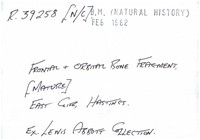 R.39258 [N/C] B.M. (NATURAL HISTORY)
FEB 1962
FRONTAL + ORBITAL BONE FRAGMENT.
[MATURE]
EAST CLIFF, HASTINGS.
EX LEWIS ABBOTT COLLECTION.